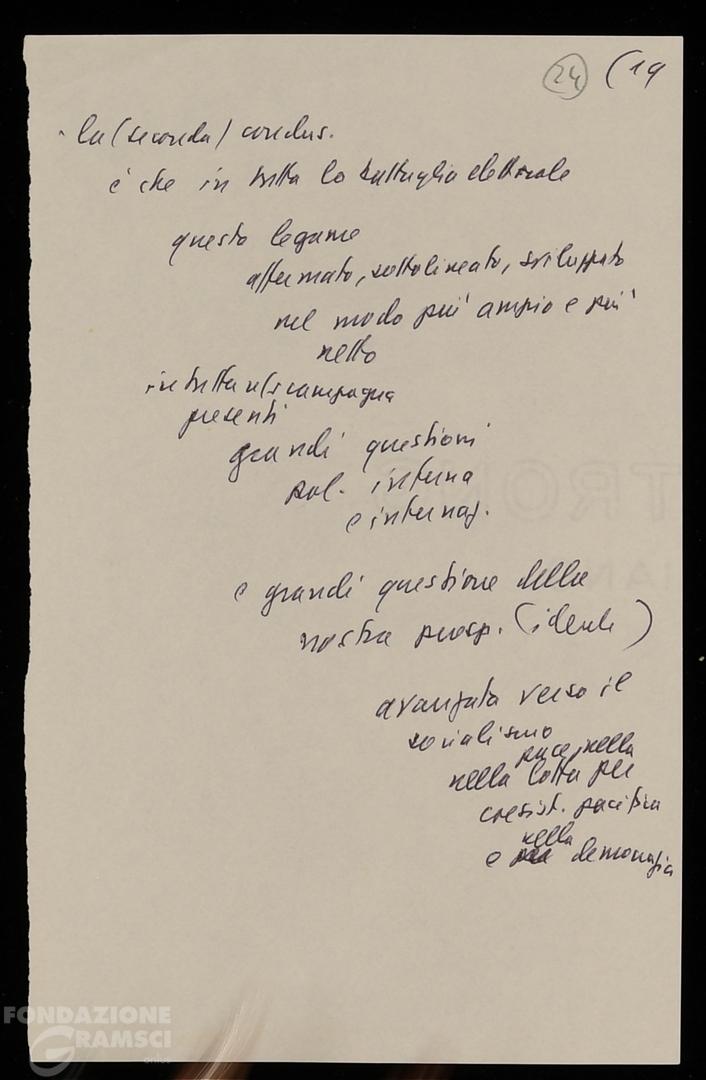 24 (19
- la (seconda) conclus.
è che in tutta la battaglia elettorale
questo legame
affermato, sottolineato, sviluppato
nel modo più ampio e più
netto
in tutta campagna
presenti
grandi questioni
pol. interna
e internaz.
e grandi questione della
nostra prosp. (ideale)
avanzata verso il
socialismo
pace, nella
nella lotta per
coesist. pacifica
nella
e democrazia
TRONO
IAN
FONDAZIONE
GRAMSCI
onlus